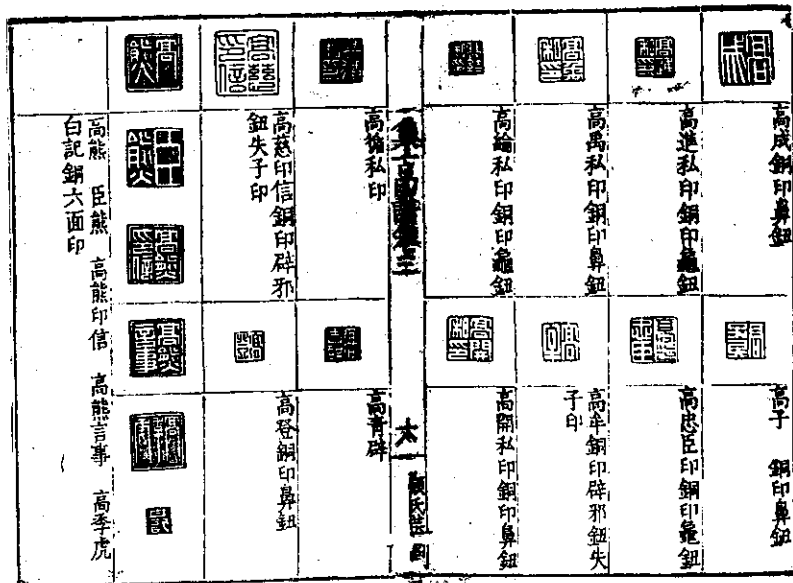 高成銅印鼻鈕
高進私印銅印龜鈕
高禹私印銅印鼻鈕
高綸私印銅印龜鈕
高子 銅印鼻鈕
高忠臣印銅印龜鈕
高牟銅印辟邪鈕失
子印
高開私印銅印鼻鈕
集古印譜卷三
六
顧氏芸閣
高脩私印
高慈印信銅印辟邪
鈕失子印
高青辟
高登銅印鼻鈕
高熊 臣熊 高熊印信 高熊言事 高季虎
白記銅六面印